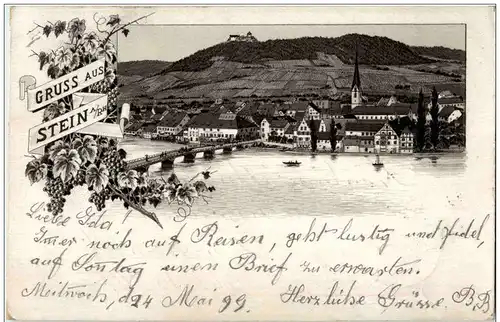 GRUSS AUS
STEIN A/RH.
Liebe Ida!
Imer noch auf Reisen, geht lustig und fidel,
auf Sontag einen Brief zu erwarten.
Meitwoch, d. 24 Mai 99. Herzliche Grüsse. B.B.